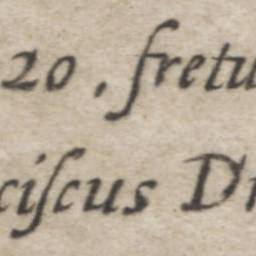 20 . fretu
ciſcus Dr